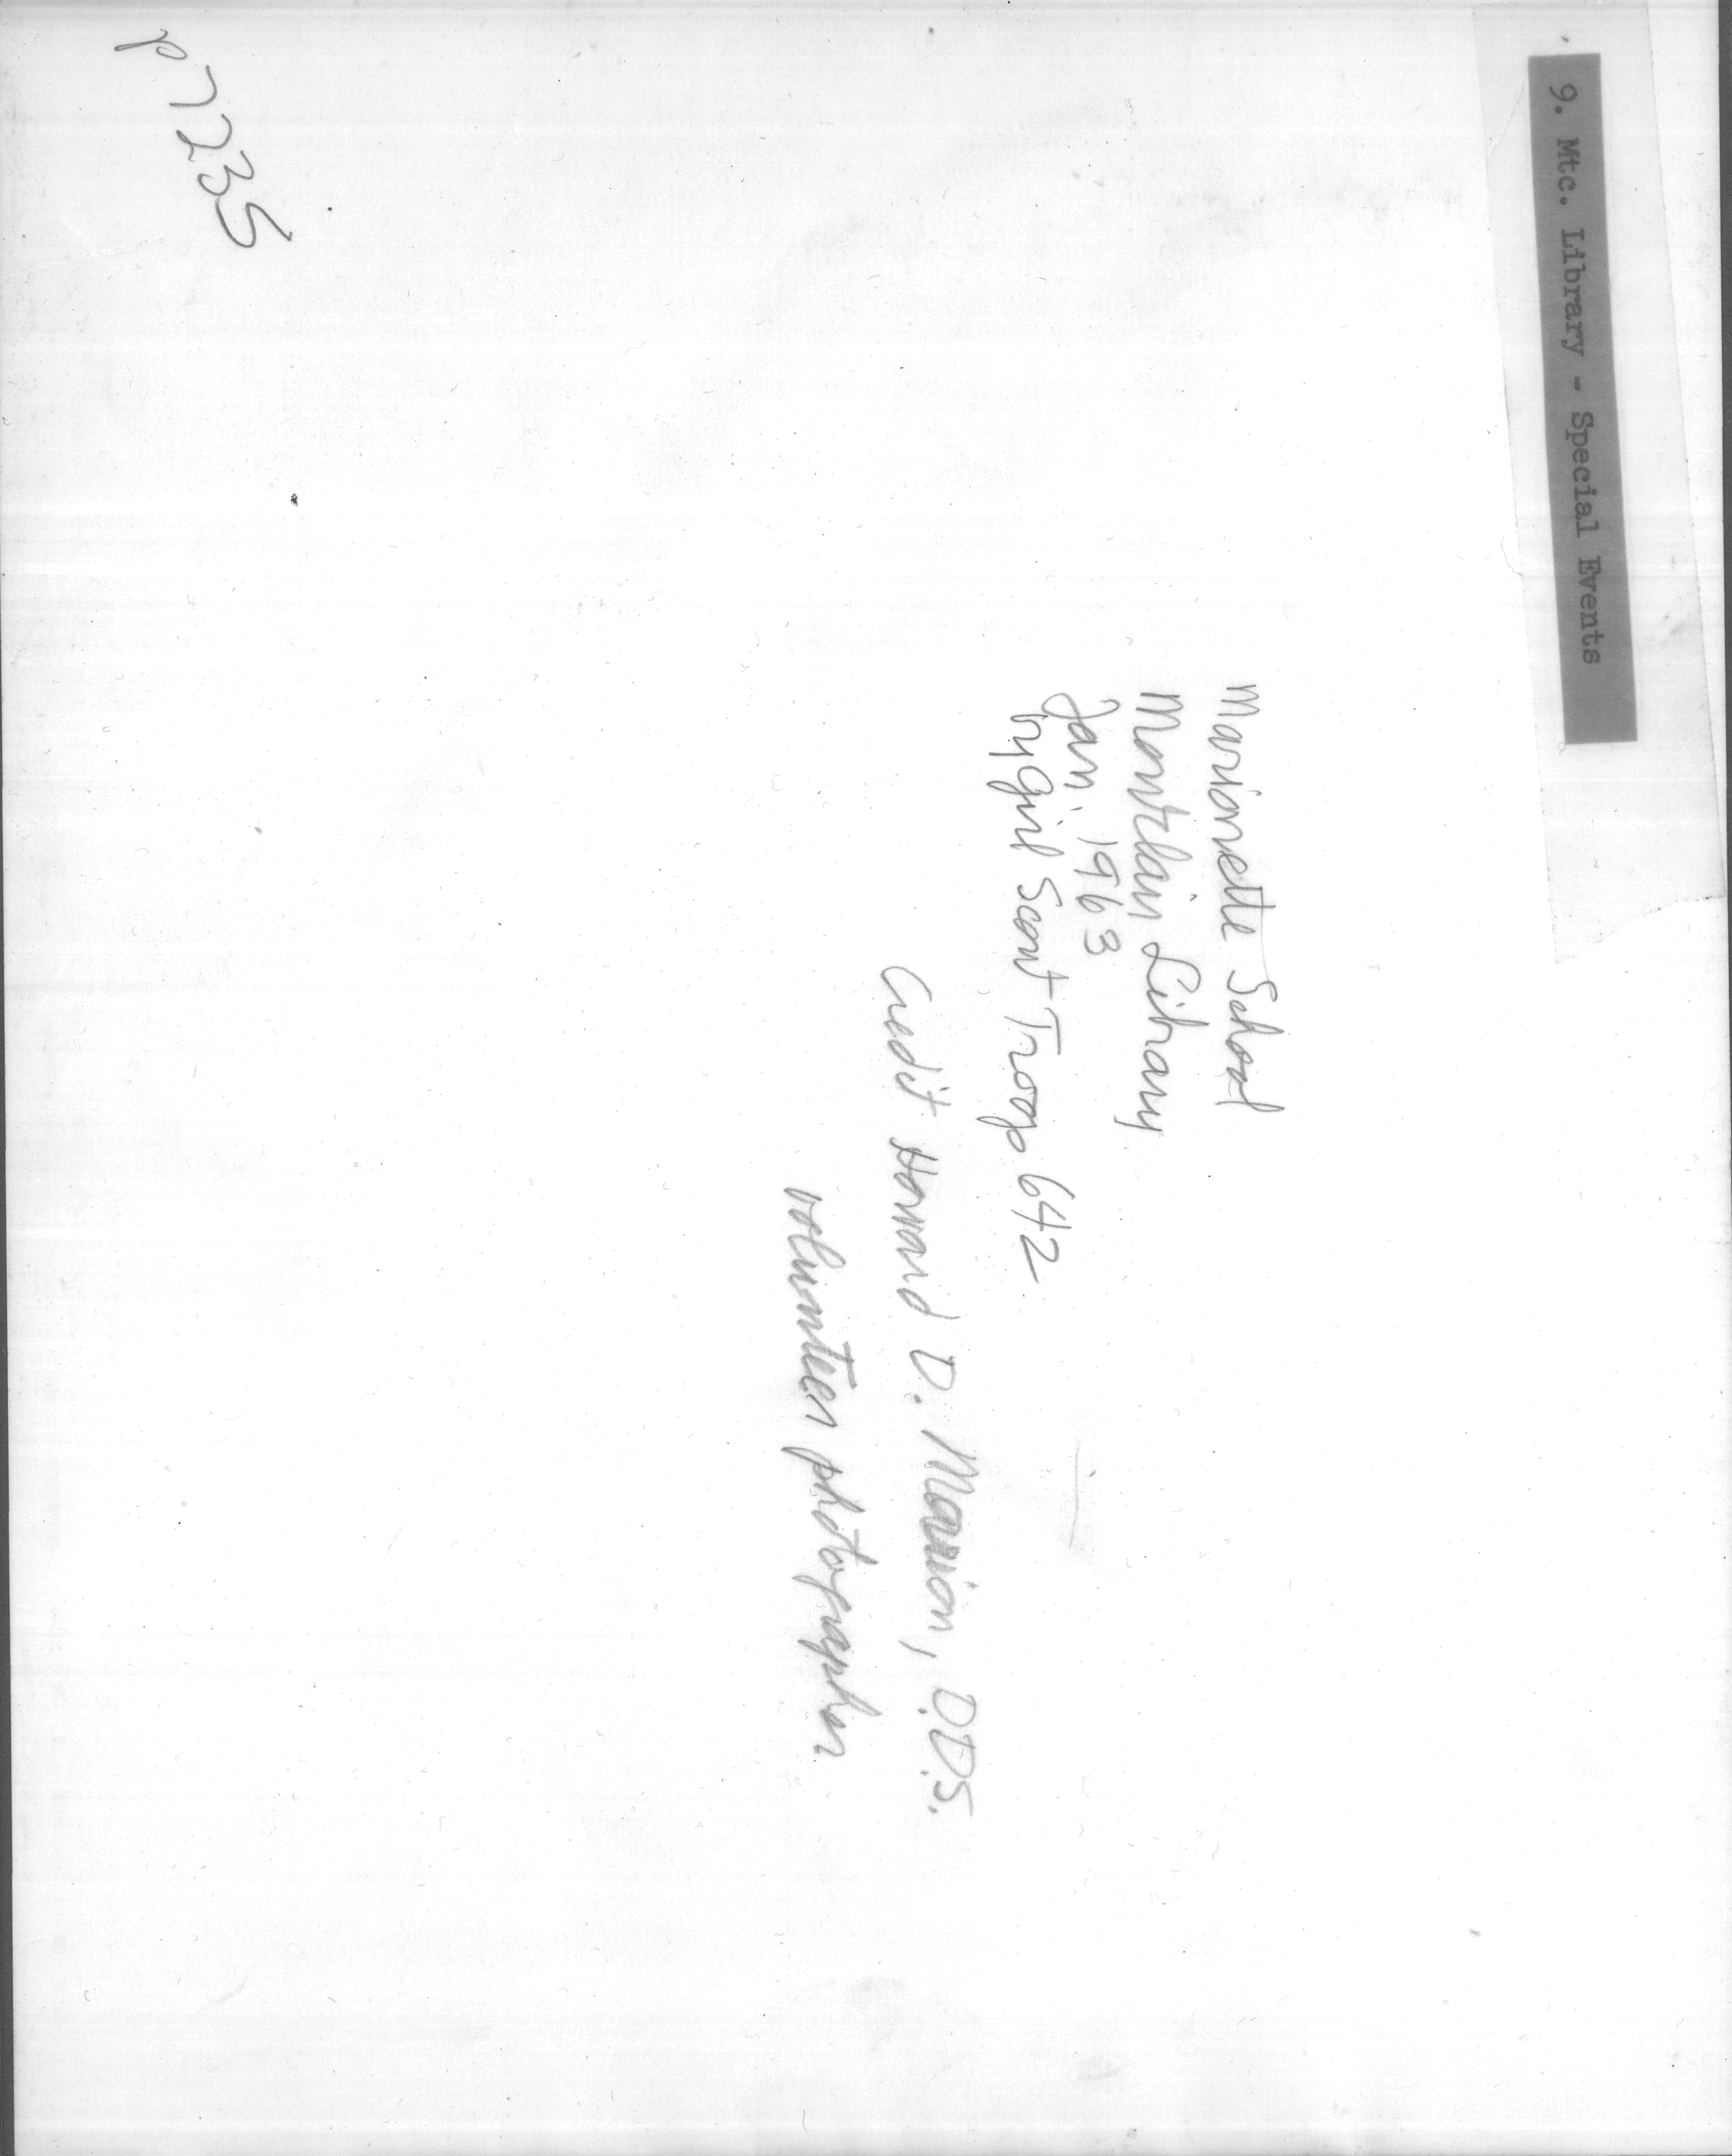 9. Mtc. Library - Special Events
Marionette School
Montclair Library
Jan. 1963
by Girl Scout Troop 642
Credit Howard D. Marion, D.D.S.
volunteer photographer
P7235